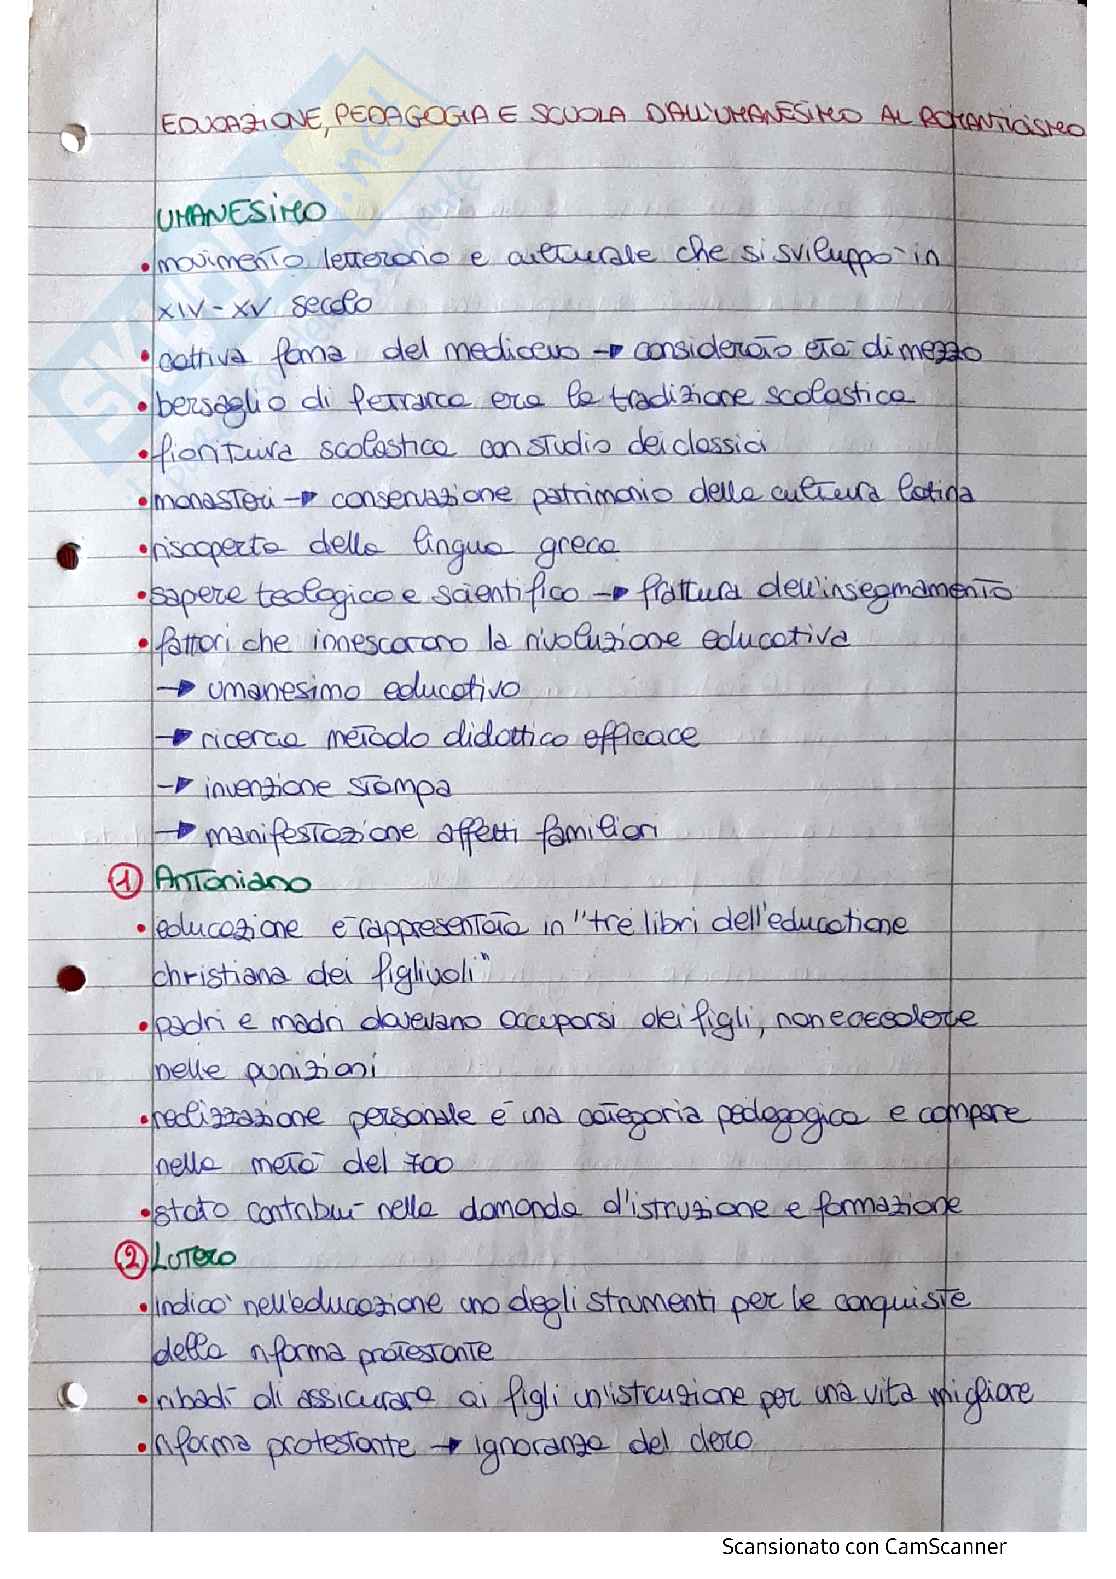 EDUCAZIONE, PEDAGOGIA E SCUOLA DALL'UMANESIMO AL ROMANTICISMO
UMANESIMO
• movimento letterario e culturale che si sviluppò in
XIV - XV secolo
• cattiva fama del medioevo → considerato età di mezzo
• bersaglio di Petrarca era la tradizione scolastica
• fioritura scolastica con studio dei classici
• monasteri → conservazione patrimonio della cultura latina
• riscoperta della lingua greca
• sapere teologico e scientifico → frattura dell'insegnamento
• fattori che innescarono la rivoluzione educativa
→ umanesimo educativo
→ ricerca metodo didattico efficace
→ invenzione stampa
→ manifestazione affetti familiari
1 Antoniano
• educazione è rappresentata in "tre libri dell'educatione
christiana dei figlivoli"
• padri e madri dovevano occuparsi dei figli, non eccedere
nelle punizioni
• realizzazione personale è una categoria pedagogica e compare
nella metà del 700
• stato contribuì nella domanda d'istruzione e formazione
2 Lutero
• indicò nell'educazione uno degli strumenti per le conquiste
della riforma protestante
• ribadì di assicurare ai figli un'istruzione per una vita migliore
• riforma protestante → ignoranza del clero
Scansionato con CamScanner
skuola.net